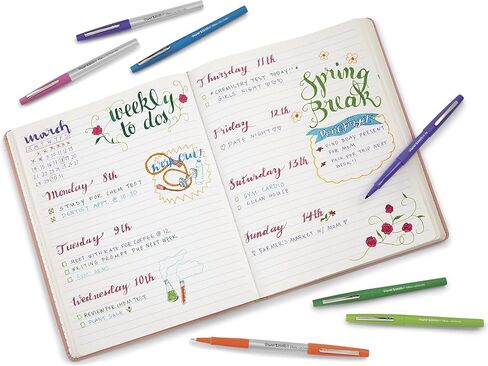 march
weekly
to dos
Monday 8th
STUDY FOR CHEM TEST
DENTIST APPT. @ 10:30
Tuesday 9th
MEET WITH KATE FOR COFFEE @ 12
WRITING PROMPT DUE NEXT WEEK
Wednesday 10th
REVIEW FOR CHEM TEST
PLANT SALE
Thursday 11th
CHEMISTRY TEST TODAY!!
GIRLS NIGHT
Friday 12th
DATE NIGHT
Saturday 13th
GYM CARDIO
CLEAN HOUSE
Sunday 14th
FARMER'S MARKET W/ MOM
Spring
Break
Don't forget
FIND BDAY PRESENT
FOR MOM
PACK FOR TRIP NEXT
WEEK!!
Paper Mate
Paper Mate
Paper Mate
Paper Mate